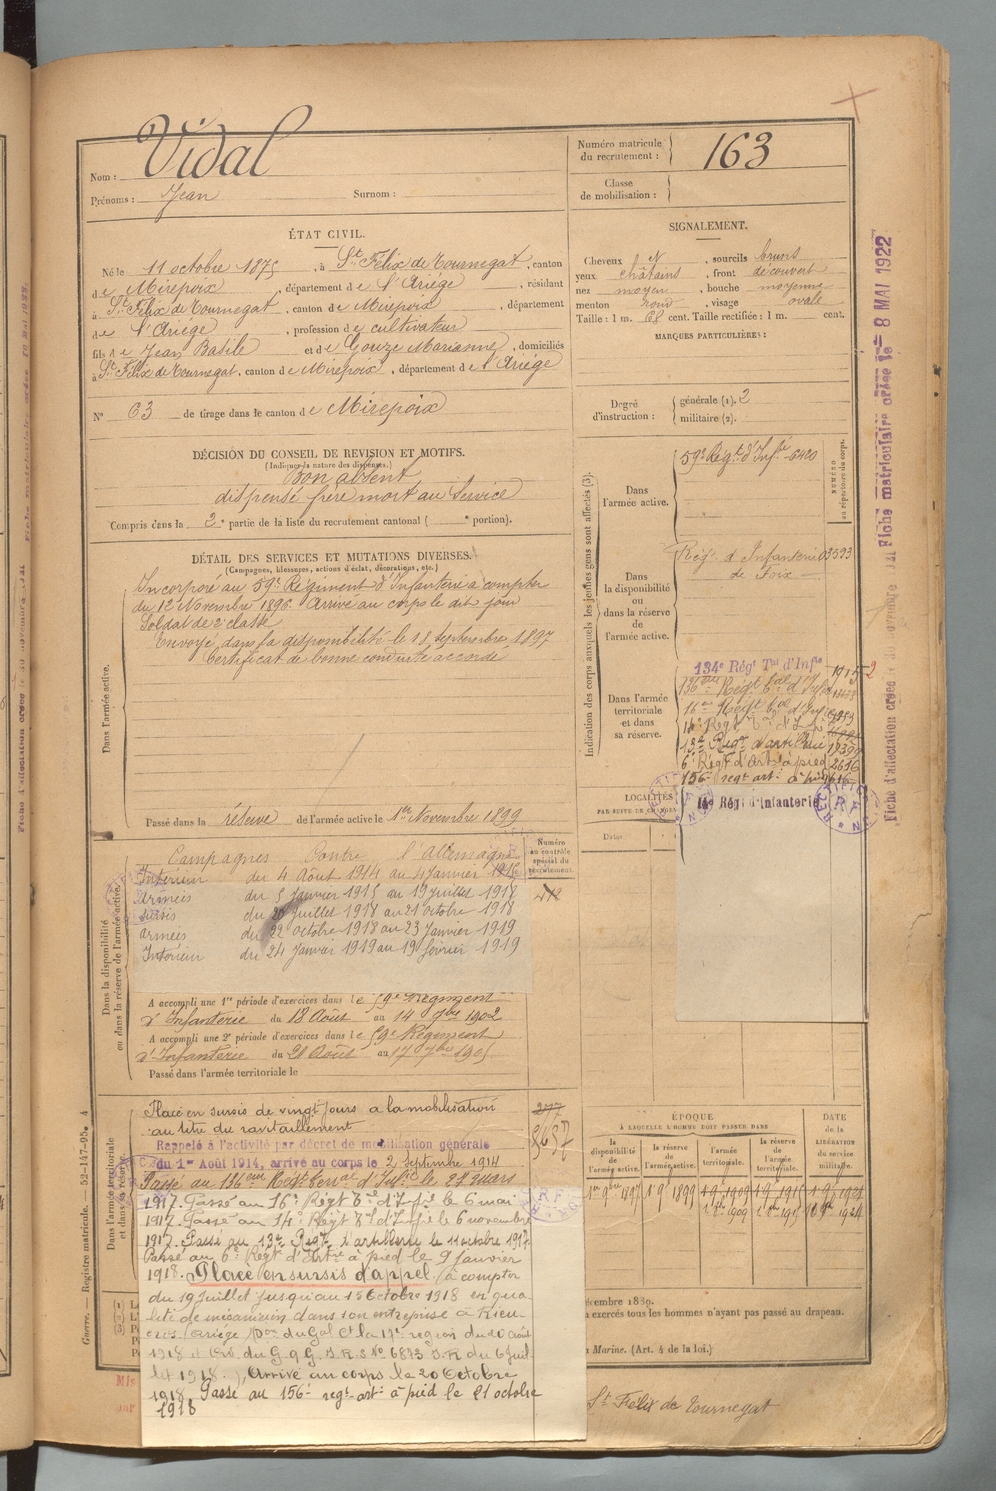 Nom : Vidal
Prénoms : Jean Surnom :
Numéro matricule du recrutement : 163
Classe de mobilisation :
ÉTAT CIVIL.
Né le 11 octobre 1875, à St Félix de Tournegat, canton
de Mirepoix, département de l'Ariége, résidant
à St Félix de Tournegat, canton de Mirepoix, département
de l'Ariége, profession de cultivateur
fils de Jean Basile et de Gouze Marianne, domiciliés
à St Félix de Tournegat, canton de Mirepoix, département de l'Ariége
N° 63 de tirage dans le canton de Mirepoix
DÉCISION DU CONSEIL DE REVISION ET MOTIFS.
(Indiquer la nature des dispenses.)
Bon absent
dispensé frère mort au Service
Compris dans la 2e partie de la liste du recrutement cantonal ( e portion).
DÉTAIL DES SERVICES ET MUTATIONS DIVERSES.
(Campagnes, blessures, actions d'éclat, décorations, etc.)
Dans l'armée active.
Incorporé au 59e Régiment d'Infanterie à compter
du 12 Novembre 1896. Arrivé au corps le dit jour
Soldat de 2e classe
Envoyé dans la disponibilité le 18 Septembre 1897
Certificat de bonne conduite accordé
Passé dans la réserve de l'armée active le 1er Novembre 1899
Numéro au contrôle spécial du recrutement.
Dans la disponibilité ou dans la réserve de l'armée active.
Campagnes Contre l'Allemagne
Intérieur du 4 Août 1914 au 4 Janvier 1915
Armées du 5 Janvier 1915 au 19 juillet 1918
Sursis du 20 juillet 1918 au 21 octobre 1918
armées du 22 octobre 1918 au 23 Janvier 1919
Intérieur du 24 Janvier 1919 au 19 février 1919
A accompli une 1re période d'exercices dans le 59e Régiment
d'Infanterie du 18 Août au 14 7bre 1902
A accompli une 2e période d'exercices dans le 59e Régiment
d'Infanterie du 21 Août au 17 7bre 1905
Passé dans l'armée territoriale le
Dans l'armée territoriale et dans sa réserve.
Placé en sursis de vingt jours a la mobilisation
au titre du ravitaillement
277
Rappelé à l'activité par décret de mobilisation générale
du 1er Août 1914, arrivé au corps le 2 Septembre 1914
Passé au 136eme Régt Terral d'Infie le 21 mars
1917. Passé au 16e Régt Tal d'Infie le 6 mai
1917. Passé au 14e Régt Tal d'Infie le 6 novembre
1917. Passé au 13e Régt d'artillerie le 11 octobre 1917.
Passé au 6e Régt d'Artie à pied le 9 Janvier
1918. Placé en sursis d'appel (à compter
du 19 Juillet jusqu'au 15 Octobre 1918 en qua-
lité de mécanicien dans son entreprise à Rieu-
cros (Ariége) du Gal Ct la 17e région du 10 août
1918 du G.Q.G. N° 6873 du 6 Juil-
let 1918.), Arrivé au corps le 20 Octobre
1918. Passé au 156e regt arti à pied le 21 octobre
1918
Guerre. — Registre matricule. — 52-147-95.
SIGNALEMENT.
Cheveux N, sourcils bruns
yeux châtains, front découvert
nez moyen, bouche moyenne
menton rond, visage ovale
Taille : 1 m. 68 cent. Taille rectifiée : 1 m. cent.
MARQUES PARTICULIÈRES :
Degré d'instruction : générale (1). 2
militaire (2).
Indication des corps auxquels les jeunes gens sont affectés (3).
NUMÉRO au répertoire du corps.
Dans l'armée active.
59e Régt d'Infie 6420
Dans la disponibilité ou dans la réserve de l'armée active.
Régt d'Infanterie 03593
de Foix
Dans l'armée territoriale et dans sa réserve.
134e Régt Tal d'Infie
136eme Régt Tal d'Infie
16e Régt Tal d'Infie
14e Régt Tal d'Infie
13e Régt d'artillerie
6e Régt d'Art à pied 2616
156e regt art. à pied
14e Régt d'Infanterie
LOCALITÉS
PAR SUITE DE CHANGE
Dates.
ÉPOQUE
À LAQUELLE L'HOMME DOIT PASSER DANS
la disponibilité de l'armée active.
la réserve de l'armée active.
l'armée territoriale.
la réserve de l'armée territoriale.
DATE de la LIBÉRATION du service militaire.
1er 9bre 1897
1 9 1899
écembre 1889.
à exercés tous les hommes n'ayant pas passé au drapeau.
Marine. (Art. 4 de la loi.)
St Félix de Tournegat
Fiche matriculaire créée le 8 MAI 1922
Fiche d'affectation créée